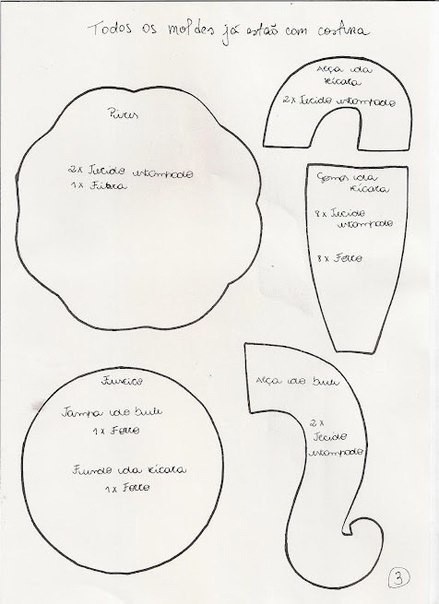 Todos os moldes já estão com costura
Alça da
xícara
2x Tecido estampado
Pires
2x Tecido estampado
1x Fibra
Gomos da
xícara
8x Tecido
estampado
8x Forro
Fuxico
Tampa do bule
1x Forro
Fundo da xícara
1x Forro
Alça do bule
2x
Tecido
estampado
3